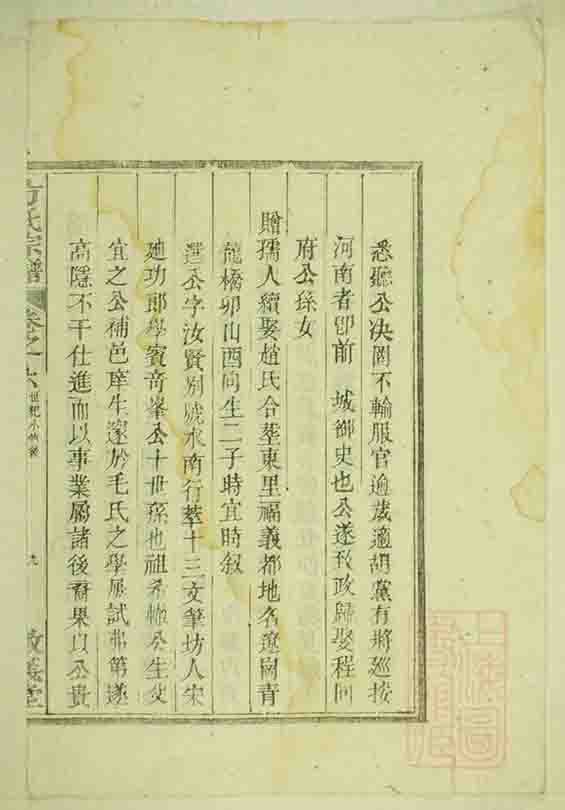 悉聽公决罔不輸服官逾歲適胡黨有將廵按
河南者卽前 城御史也公遂致政歸娶程同
府公孫女
贈孺人續娶趙氏合葬東里福義都地名遼岡青
龍橋卯山酉向生二子時宜時叙
選公字汝賢别號水南行萃十三文筆坊人宋
廸功郎學賓奇峯公十世孫也祖希 公生父
宜之公補邑庠生邃於毛氏之學屢試弗第遂
高隱不干仕進而以事業屬諸後裔果以公貴
方氏宗譜 卷之六 世紀小 九 敦義堂
上海圖書館藏